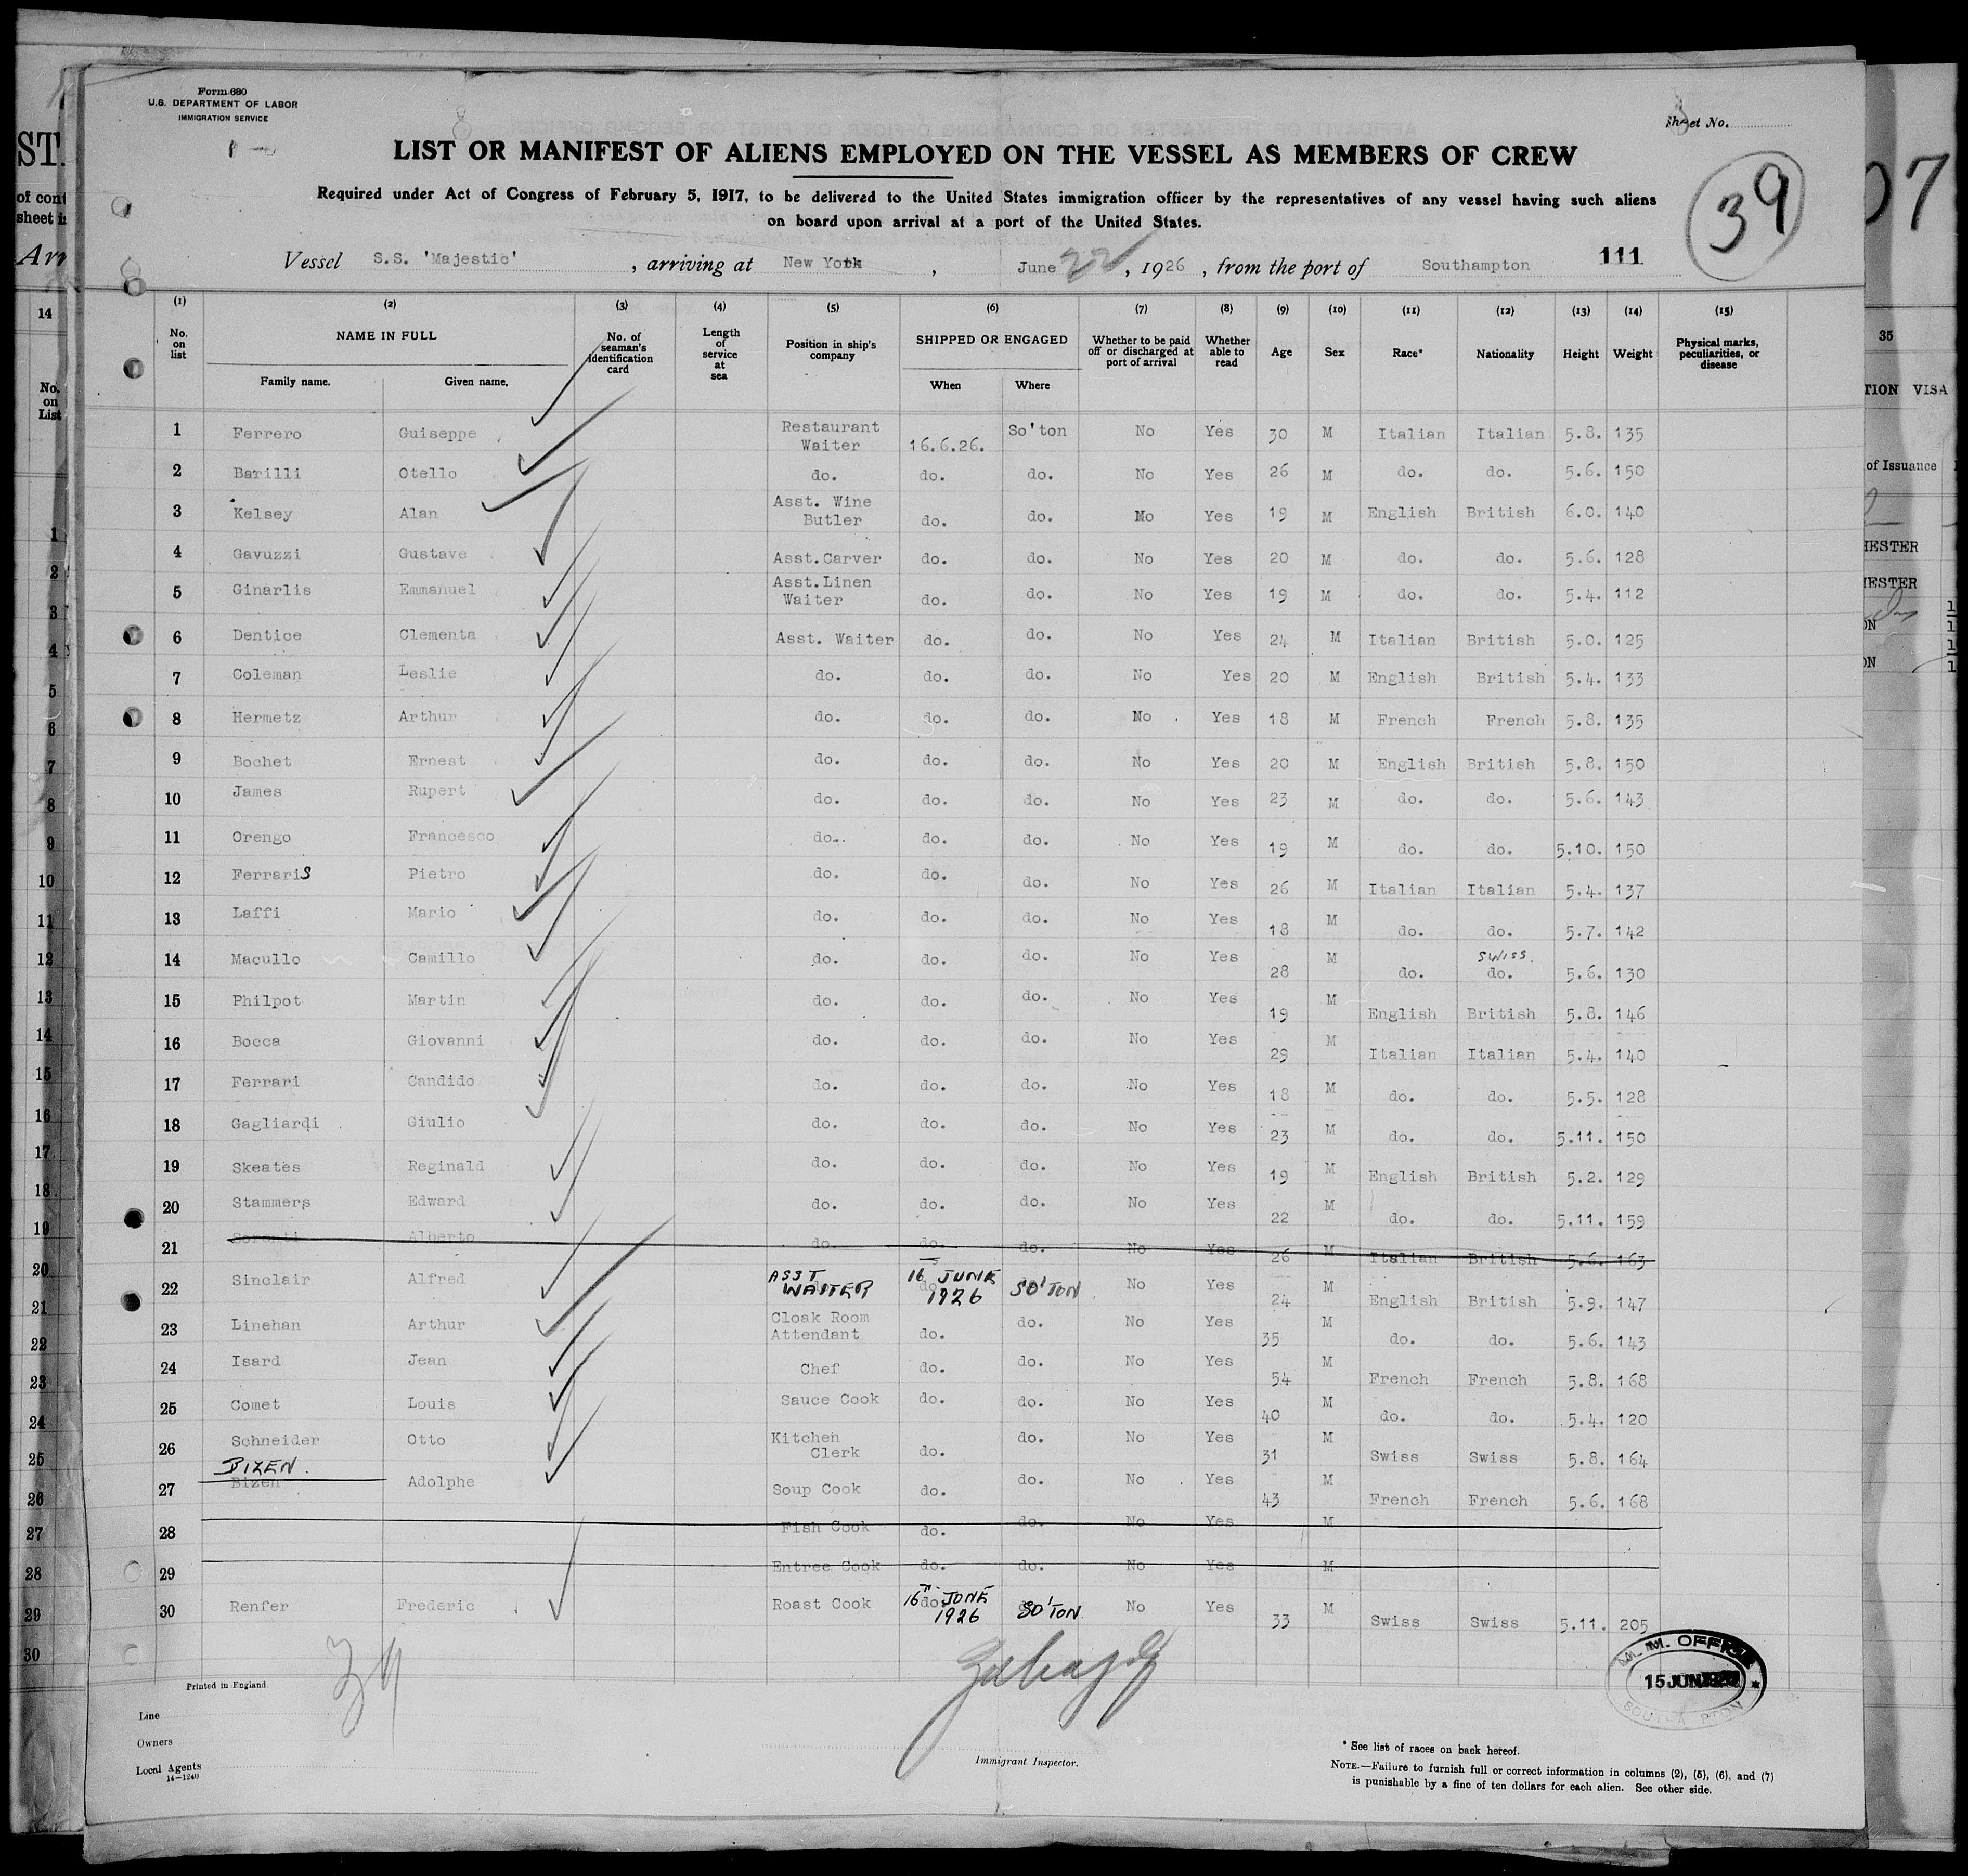 Form 680
U.S. DEPARTMENT OF LABOR
IMMIGRATION SERVICE
Sheet No.
LIST OR MANIFEST OF ALIENS EMPLOYED ON THE VESSEL AS MEMBERS OF CREW
39
Required under Act of Congress of February 5, 1917, to be delivered to the United States immigration officer by the representatives of any vessel having such aliens
on board upon arrival at a port of the United States.
Vessel S.S. 'Majestic' , arriving at New York , June 22, 1926 , from the port of Southampton 111
(1) (2) (3) (4) (5) (6) (7) (8) (9) (10) (11) (12) (13) (14) (15)
No. on list NAME IN FULL Family name. Given name. No. of seaman's identification card Length of service at sea Position in ship's company SHIPPED OR ENGAGED When Where Whether to be paid off or discharged at port of arrival Whether able to read Age Sex Race* Nationality Height Weight Physical marks, peculiarities, or disease
1 Ferrero Guiseppe Restaurant Waiter 16.6.26. So'ton No Yes 30 M Italian Italian 5.8. 135
2 Barilli Otello do. do. do. No Yes 26 M do. do. 5.6. 150
3 Kelsey Alan Asst. Wine Butler do. do. No Yes 19 M English British 6.0. 140
4 Gavuzzi Gustave Asst.Carver do. do. No Yes 20 M do. do. 5.6. 128
5 Ginarlis Emmanuel Asst.Linen Waiter do. do. No Yes 19 M do. do. 5.4. 112
6 Dentice Clementa Asst. Waiter do. do. No Yes 24 M Italian British 5.0. 125
7 Coleman Leslie do. do. do. No Yes 20 M English British 5.4. 133
8 Hermetz Arthur do. do. do. No Yes 18 M French French 5.8. 135
9 Bochet Ernest do. do. do. No Yes 20 M English British 5.8. 150
10 James Rupert do. do. do. No Yes 23 M do. do. 5.6. 143
11 Orengo Francesco do. do. do. No Yes 19 M do. do. 5.10. 150
12 FerrariS Pietro do. do. do. No Yes 26 M Italian Italian 5.4. 137
13 Laffi Mario do. do. do. No Yes 18 M do. do. 5.7. 142
14 Macullo Camillo do. do. do. No Yes 28 M do. SWISS. do. 5.6. 130
15 Philpot Martin do. do. do. No Yes 19 M English British 5.8. 146
16 Bocca Giovanni do. do. do. No Yes 29 M Italian Italian 5.4. 140
17 Ferrari Candido do. do. do. No Yes 18 M do. do. 5.5. 128
18 Gagliardi Giulio do. do. do. No Yes 23 M do. do. 5.11. 150
19 Skeates Reginald do. do. do. No Yes 19 M English British 5.2. 129
20 Stammers Edward do. do. do. No Yes 22 M do. do. 5.11. 159
21 Alberto do. do. do. No Yes 26 M Italian British 5.6. 163
22 Sinclair Alfred ASST WAITER 16 JUNE 1926 SO'TON No Yes 24 M English British 5.9. 147
23 Linehan Arthur Cloak Room Attendant do. do. No Yes 35 M do. do. 5.6. 143
24 Isard Jean Chef do. do. No Yes 54 M French French 5.8. 168
25 Comet Louis Sauce Cook do. do. No Yes 40 M do. do. 5.4. 120
26 Schneider Otto Kitchen Clerk do. do. No Yes 31 M Swiss Swiss 5.8. 164
BIZEN.
27 Bizen Adolphe Soup Cook do. do. No Yes 43 M French French 5.6. 168
28 Fish Cook do. do. No Yes M
29 Entree Cook do. do. No Yes M
30 Renfer Frederic Roast Cook 16TH JUNE 1926 SO'TON No Yes 33 M Swiss Swiss 5.11. 205
M.M. OFFICE
15 JUN
Printed in England
Line
Owners
Local Agents
14-1240
Immigrant Inspector.
* See list of races on back hereof.
NOTE.—Failure to furnish full or correct information in columns (2), (5), (6), and (7)
is punishable by a fine of ten dollars for each alien. See other side.